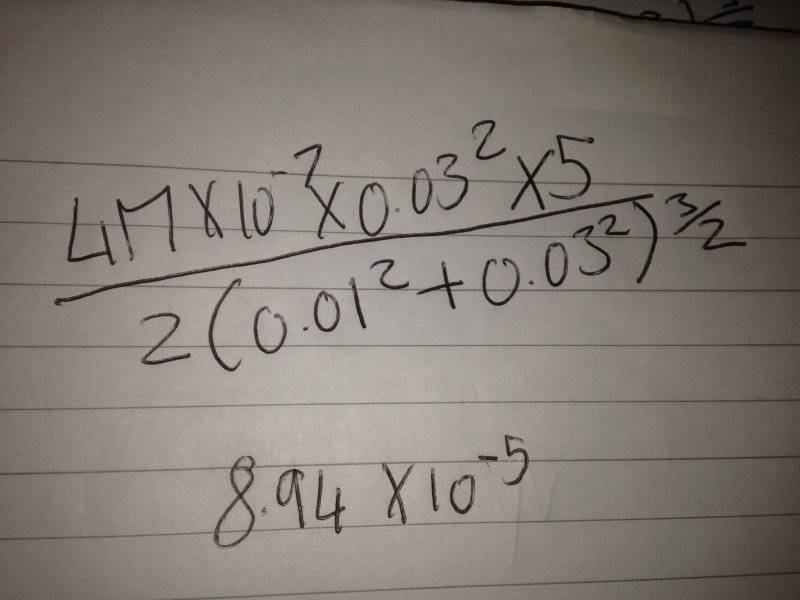 4π×10⁻⁷×0.03²×5
2(0.01²+0.03²)^3/2
8.94 ×10⁻⁵